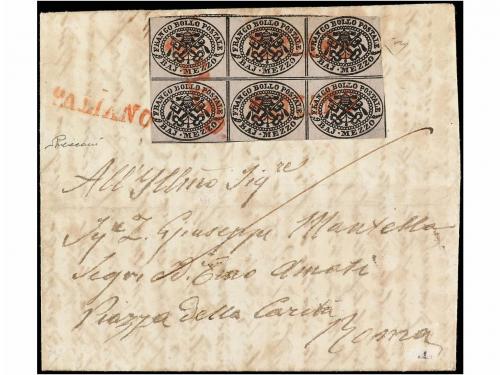 FRANCO BOLLO POSTALE FRANCO BOLLO POSTALE FRANCO BOLLO POSTALE
BAJ·MEZZO BAJ·MEZZO BAJ·MEZZO
FRANCO BOLLO POSTALE FRANCO BOLLO POSTALE FRANCO BOLLO POSTALE
BAJ·MEZZO BAJ·MEZZO BAJ·MEZZO
PALIANO
All' Illmo Sigre
Giuseppe Mantella
Amati
Piazza della Carità
Roma